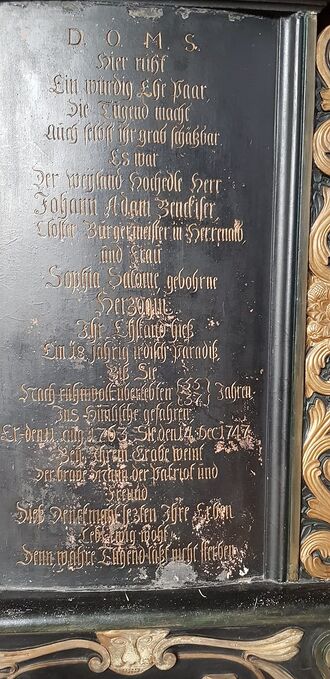 D. O. M. S.
Hier ruht
Ein würdig Ehe Paar,
Die Tugend macht
Auch selbst ihr grab schätzbar.
Es war
Der weyland Hochedle Herr
Johann Adam Benckiser,
Closter Burgermeister in Herrenalb,
und Frau
Sophia Salome gebohrne
Herzogin
Ihr Ehstand hieß
Ein 18. jährig irdisch Paradiß,
Biß Sie
Nach ruhmvoll überlebten Jahren,
Ins Himlische gefahren,
Er den 11. aug. 1763. Sie den 14. Dec 1747.
Bey Ihrem Grabe weint
der brave Mann der Patriot und
Freund
Dieß Denckmahl sezten Ihre Erben
Lebt Ewig wohl
Denn wahre Tugend läßt nicht sterben